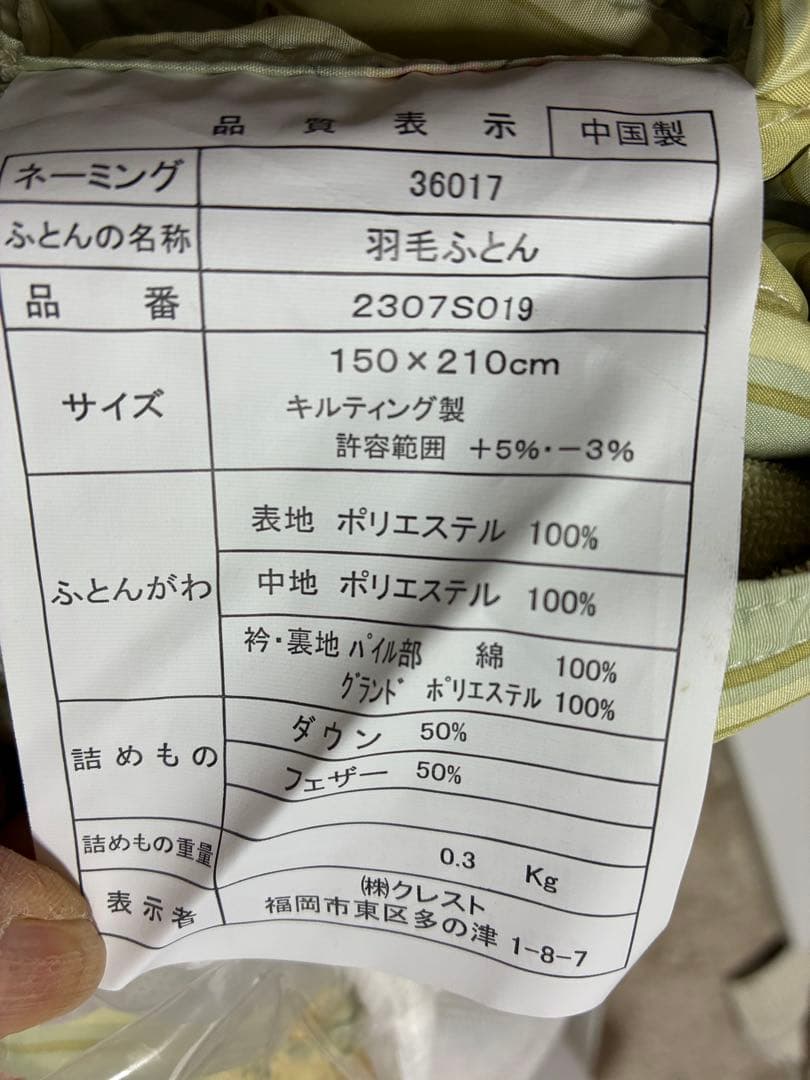 品質表示 中国製
ネーミング 36017
ふとんの名称 羽毛ふとん
品番 2307S019
サイズ 150×210cm
キルティング製
許容範囲 +5%・-3%
ふとんがわ 表地 ポリエステル 100%
中地 ポリエステル 100%
衿・裏地 ﾊﾟｲﾙ部 綿 100%
ｸﾞﾗﾝﾄﾞ ﾎﾟﾘｴｽﾃﾙ 100%
詰めもの ダウン 50%
フェザー 50%
詰めもの重量 0.3 Kg
表示者 ㈱クレスト
福岡市東区多の津 1-8-7